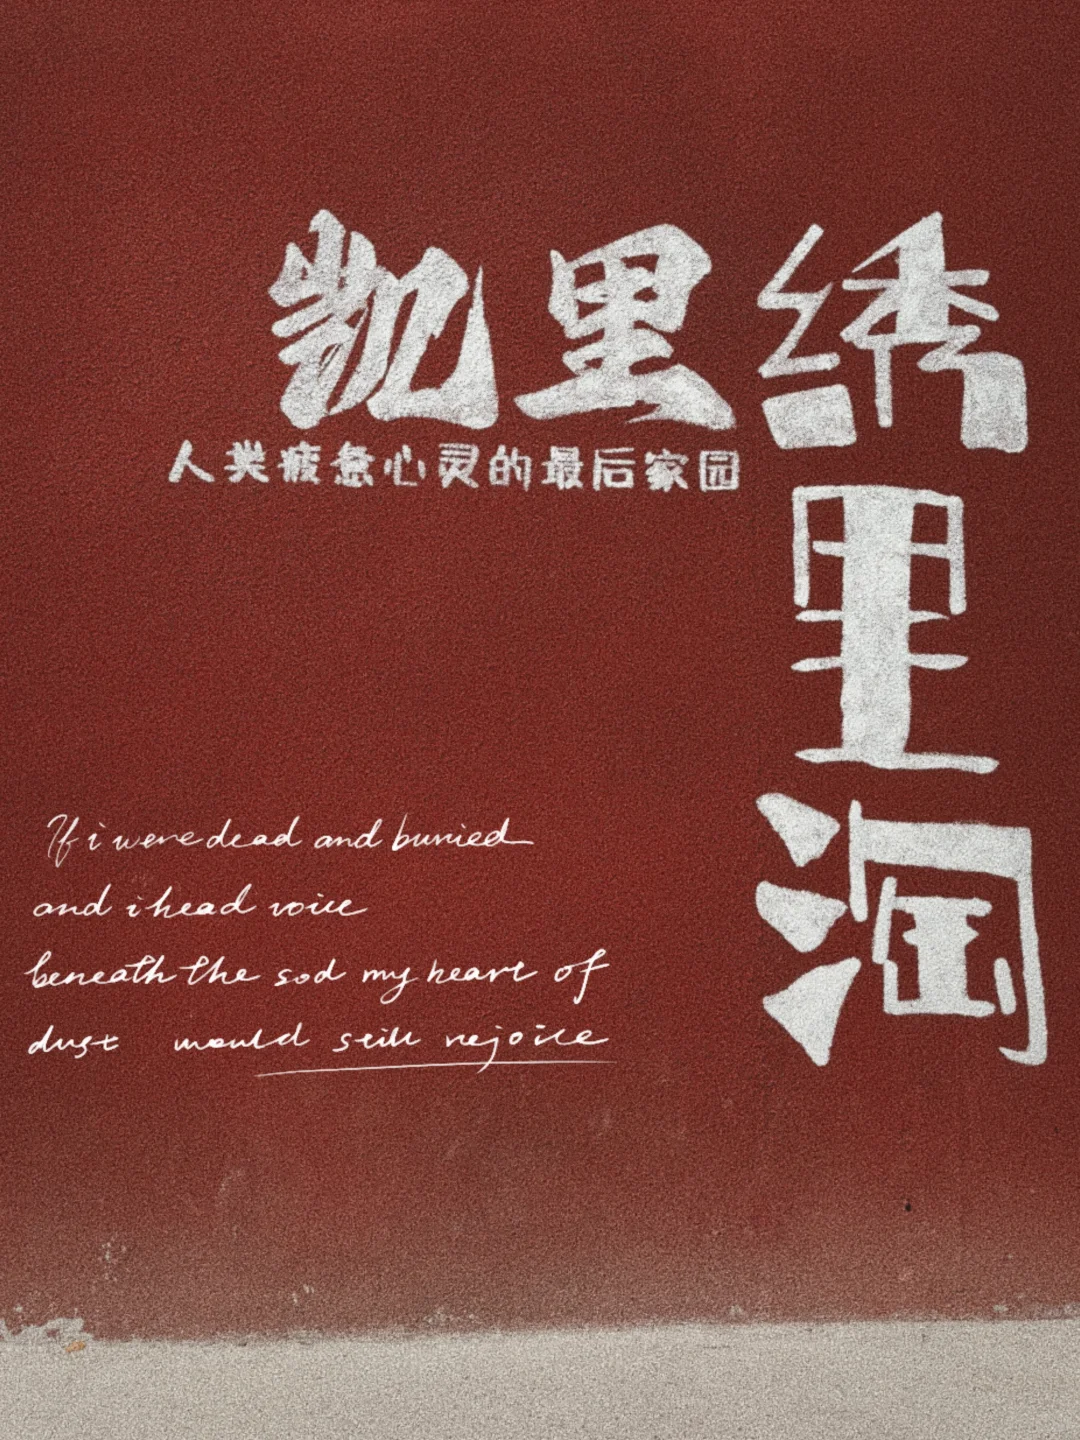 凯里
人类疲惫心灵的最后家园
绣里淘
If i were dead and buried
and i head voice
beneath the sod my heart of
dust would still rejoice